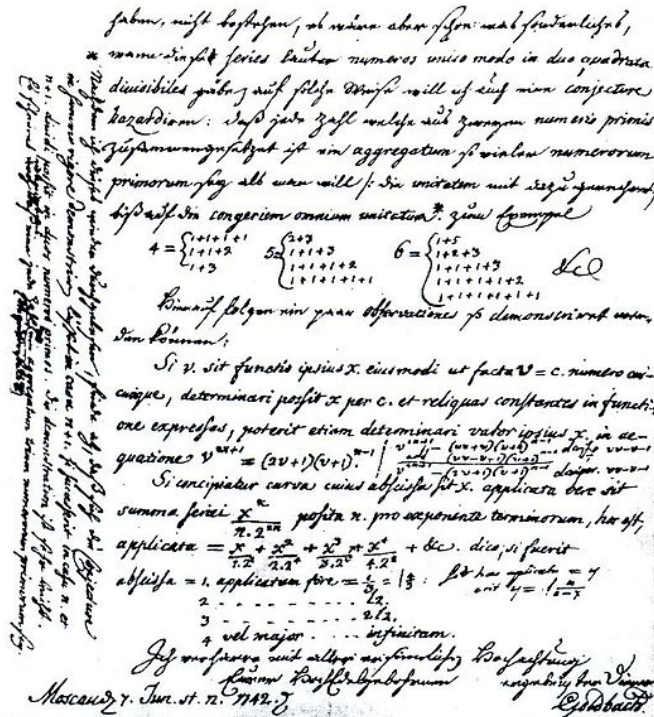 haben, nicht bestehen, es wäre aber schon was sonderliches,
wann diese series lauter numeros unico modo in duo quadrata
divisibiles gäbe, auf solche Weise will ich auch eine conjecture
hazardiren: daß jede Zahl welche aus zweyen numeris primis
zusammengesetzet ist ein aggregatum so vieler numerorum
primorum sey als man will /: die unitatem mit dazu gerechnet,
biß auf die congeriem omnium unitatum*. zum Exempel
4 = { 1+1+1+1
1+1+2
1+3
5 = { 2+3
1+1+3
1+1+1+2
1+1+1+1+1
6 = { 1+5
1+2+3
1+1+1+3
1+1+1+1+2
1+1+1+1+1+1
&c
Hierauf folgen ein paar observationes so demonstriret wer-
den können:
Si v. sit functio ipsius x. eiusmodi ut facta v = c. numero cui-
cunque, determinari possit x per c. et reliquas constantes in functi-
one expressas, poterit etiam determinari valor ipsius x. in ae-
quatione v^2n+1 = (2v+1)(v+1)^n-1.
Si concipiatur curva cuius abscissa sit x. applicata vero sit
summa seriei x^n/n.2^2n posita n. pro exponente terminorum, hoc est,
applicata = x/1.2^2 + x^2/2.2^4 + x^3/3.2^6 + x^4/4.2^8 + &c. dico, si fuerit
abscissa = 1. applicatam fore = l 4/3
2 . . . . . . . . . l2.
3 . . . . . . . . . 2l2.
4 vel major . . . . infinitam.
Ich verharre mit aller Hochachtung
Eurer Hochedelgebohrnen ergebenster Diener
Moscau d 7. Jun. st. n. 1742. Goldbach.
* Nachdem ich dieses wieder durchgelesen, finde ich, daß sich die conjecture
in summo rigore demonstriren läßet in casu n+1. si successerit in casu n. et
n+1. dividi possit in duos numeros primos. Die demonstration ist sehr leicht.
Es scheinet wenigstens, daß eine jede Zahl ein aggregatum trium numerorum primorum sey.